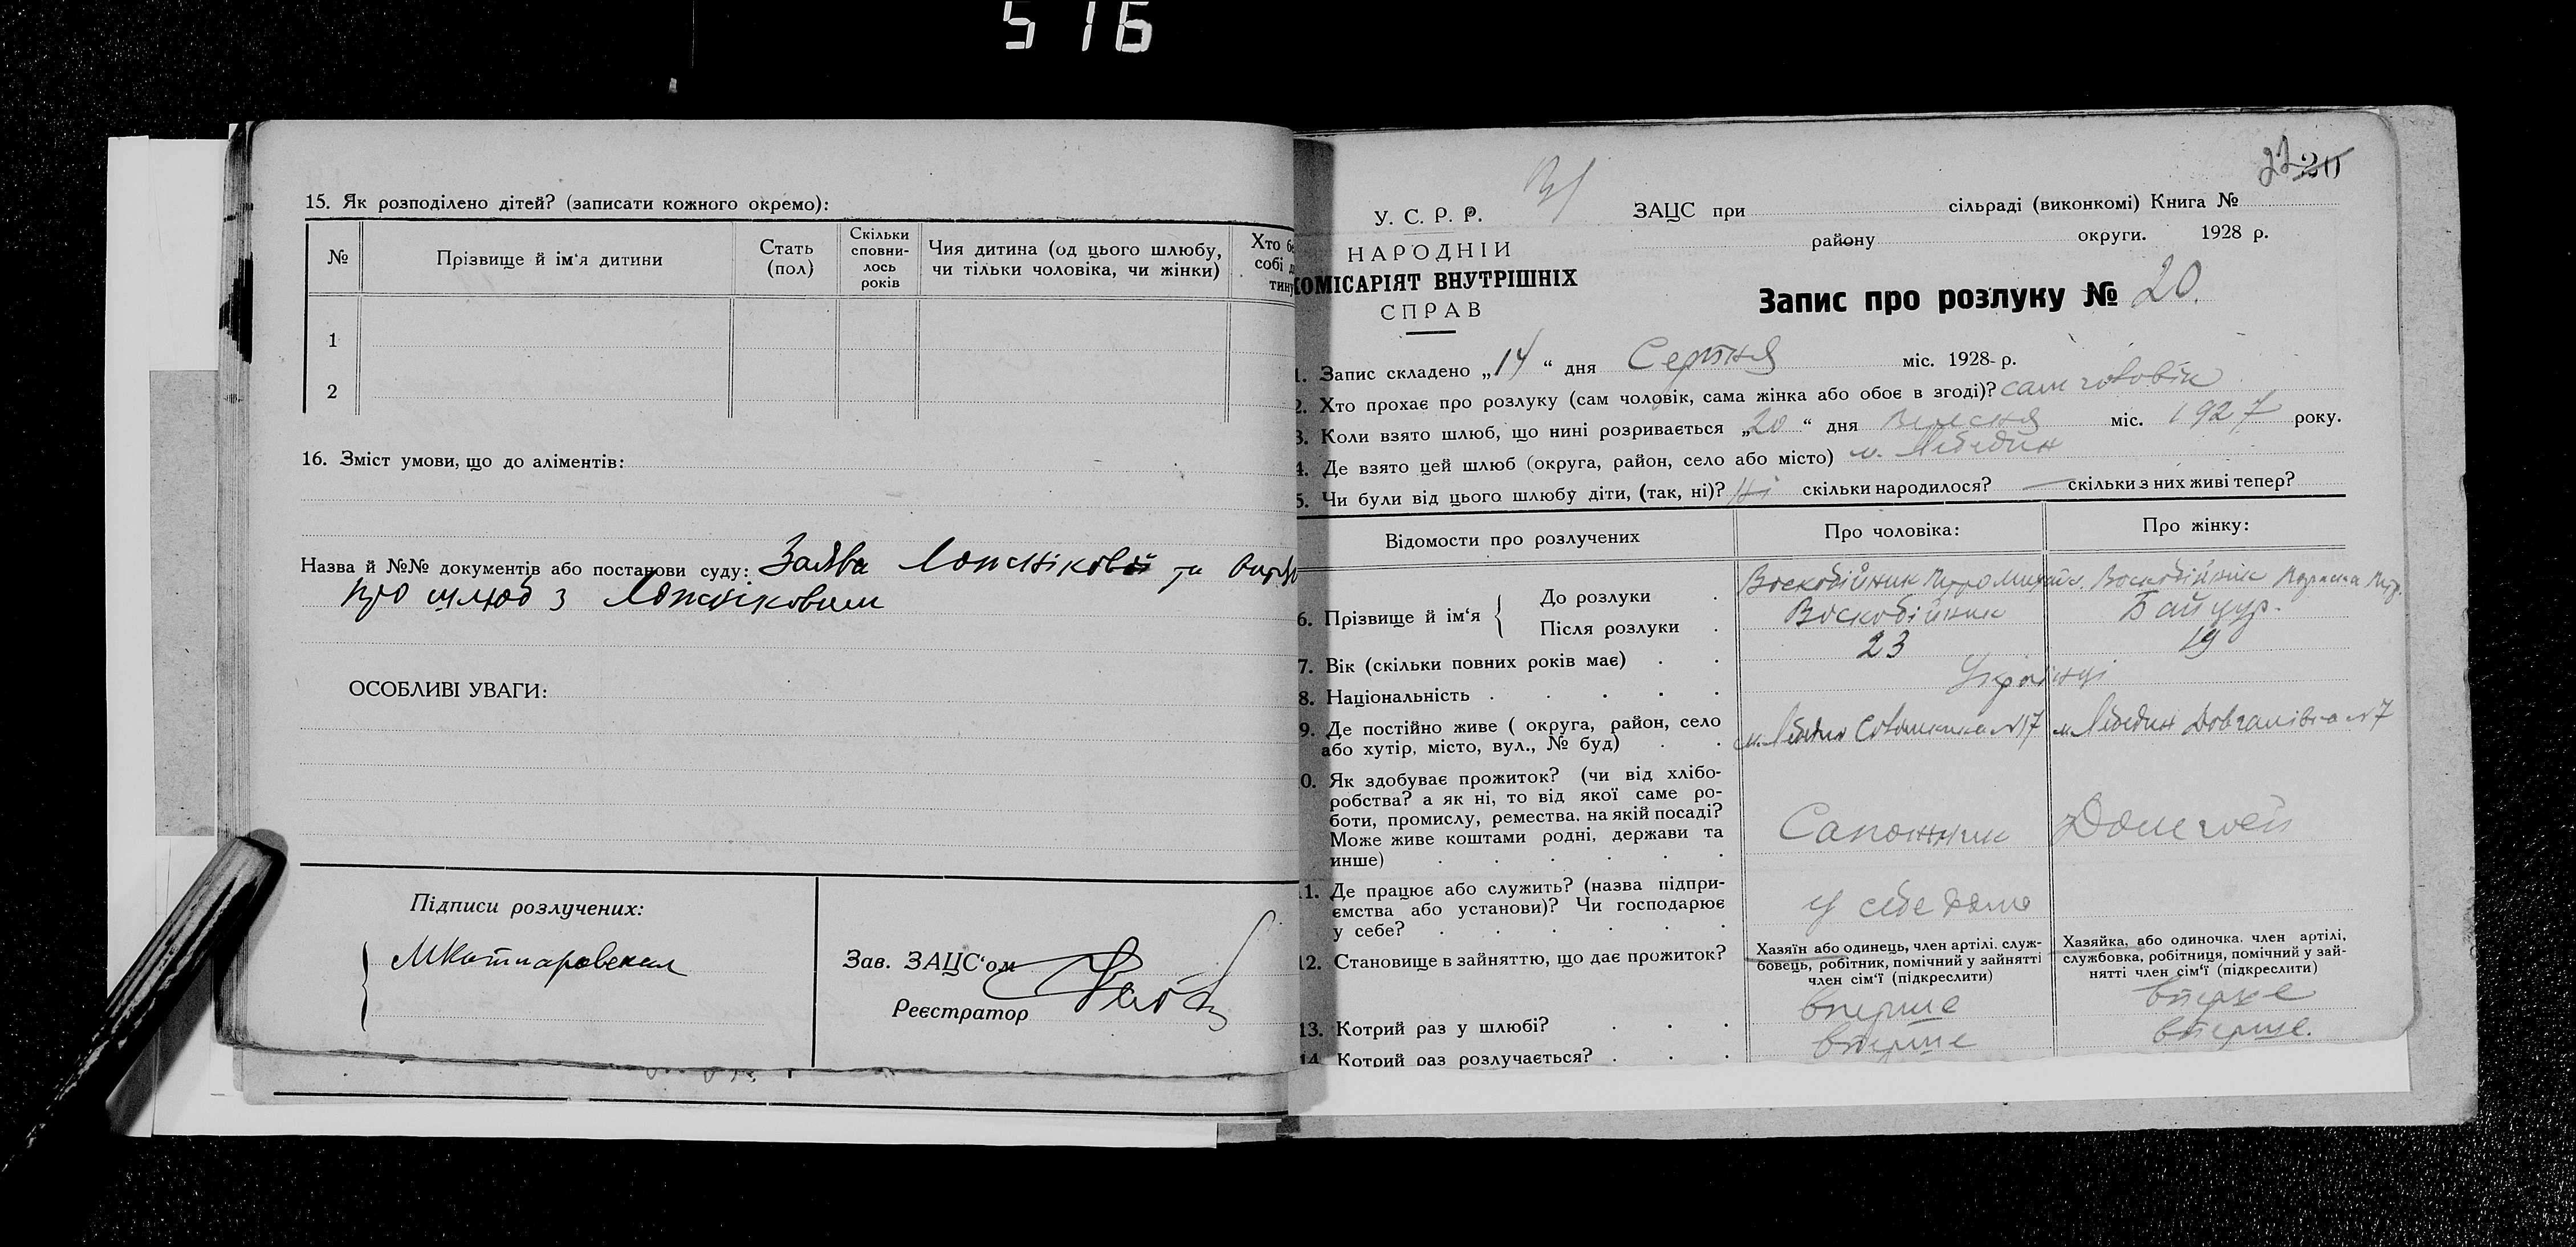 516
15. Як розподілено дітей? (записати кожного окремо):
№
Прізвище й ім'я дитини
Стать (пол)
Скільки сповни-лось років
Чия дитина (од цього шлюбу, чи тільки чоловіка, чи жінки)
Хто
собі
1
2
16. Зміст умови, що до аліментів:
Назва й №№ документів або постанови суду: Заява та
про шлюб з
ОСОБЛИВІ УВАГИ:
Підписи розлучених:
Зав. ЗАЦС'ом
Реєстратор
22 20
У. С. Р. Р.
НАРОДНІЙ
КОМІСАРІЯТ ВНУТРІШНІХ
СПРАВ
ЗАЦС при сільраді (виконкомі) Книга №
району округи. 1928 р.
Запис про розлуку № 20.
1. Запис складено „14“ дня Серпня міс. 1928 р.
2. Хто прохає про розлуку (сам чоловік, сама жінка або обоє в згоді)? сам чоловік
3. Коли взято шлюб, що нині розривається „20“ дня Вересня міс. 1927 року.
4. Де взято цей шлюб (округа, район, село або місто) м. Лебедин
5. Чи були від цього шлюбу діти, (так, ні)? Ні скільки народилося? — скільки з них живі тепер?
Відомости про розлучених
Про чоловіка:
Про жінку:
6. Прізвище й ім'я
До розлуки Воскобійник Петро Воскобійник
Після розлуки Воскобійник Байцур.
7. Вік (скільки повних років має) 23 19
8. Національність Українці
9. Де постійно живе ( округа, район, село
або хутір, місто, вул., № буд) м. Лебедин №17 м. Лебедин Довгалівка №7
10. Як здобуває прожиток? (чи від хлібо-
робства? а як ні, то від якої саме ро-
боти, промислу, ремества. на якій посаді?
Може живе коштами родні, держави та
инше) Сапожник
11. Де працює або служить? (назва підпри-
ємства або установи)? Чи господарює
у себе? У себе дома
12. Становище в зайняттю, що дає прожиток?
Хазяїн або одинець, член артілі. служ-
бовець, робітник, помічний у зайнятті
член сім'ї (підкреслити)
Хазяйка, або одиночка. член артілі,
службовка, робітниця, помічний у зай-
нятті член сім'ї (підкреслити)
13. Котрий раз у шлюбі? вперше вперше
14. Котрий раз розлучається? вперше вперше.